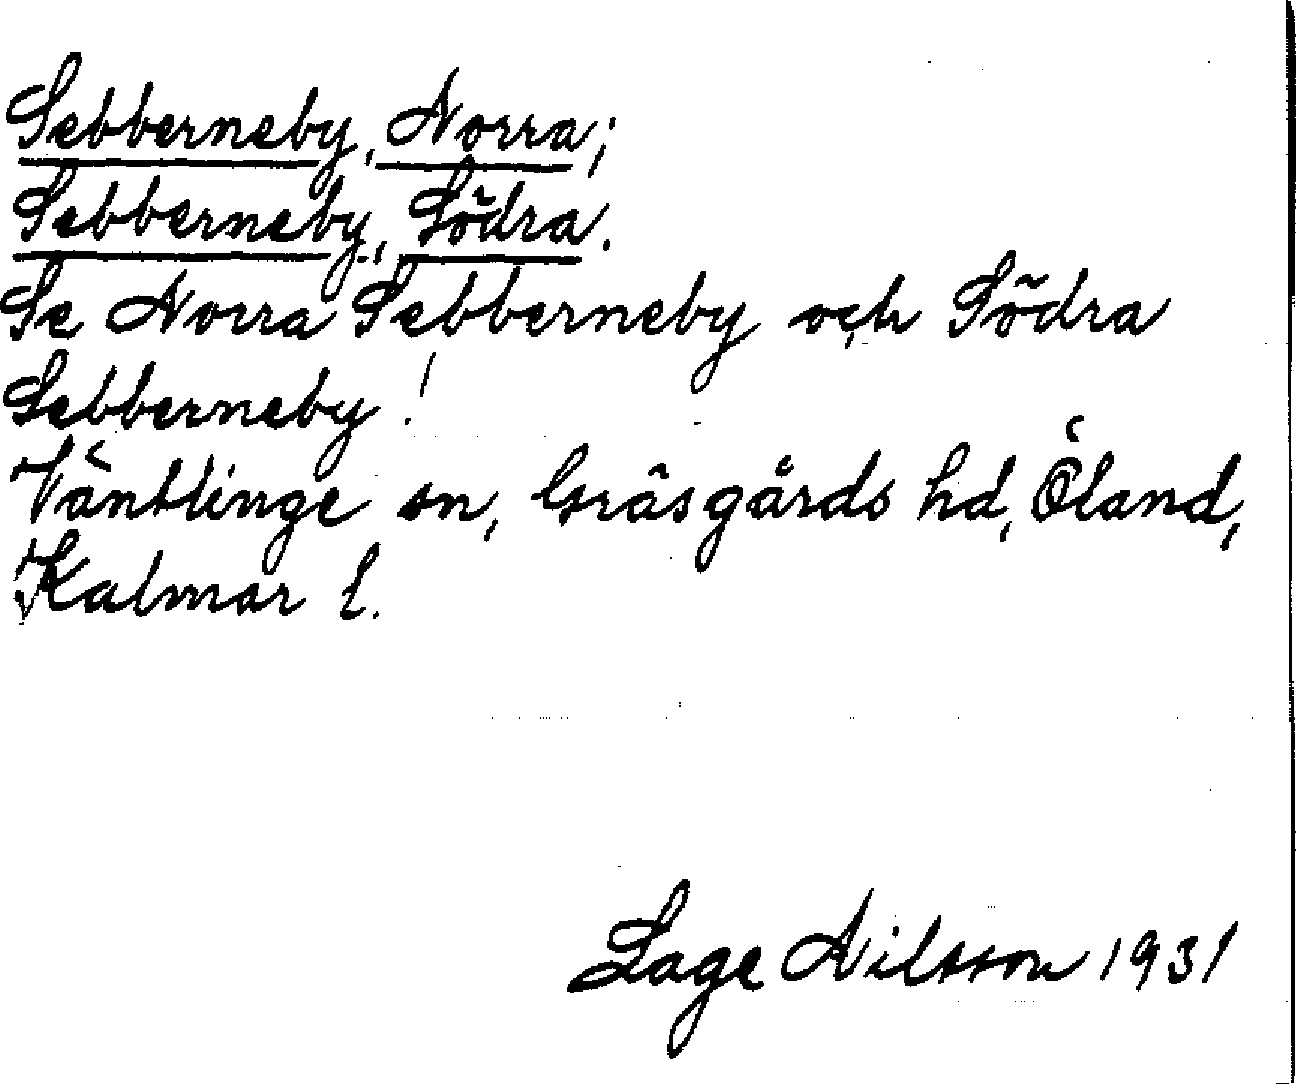 Sebberneby, Norra;
Sebberneby, Södra.
Se Norra Sebberneby och Södra
Sebberneby!
Väntlinge sn, Gräsgårds hd, Öland,
Kalmar l.
Lage Nilsson 1931